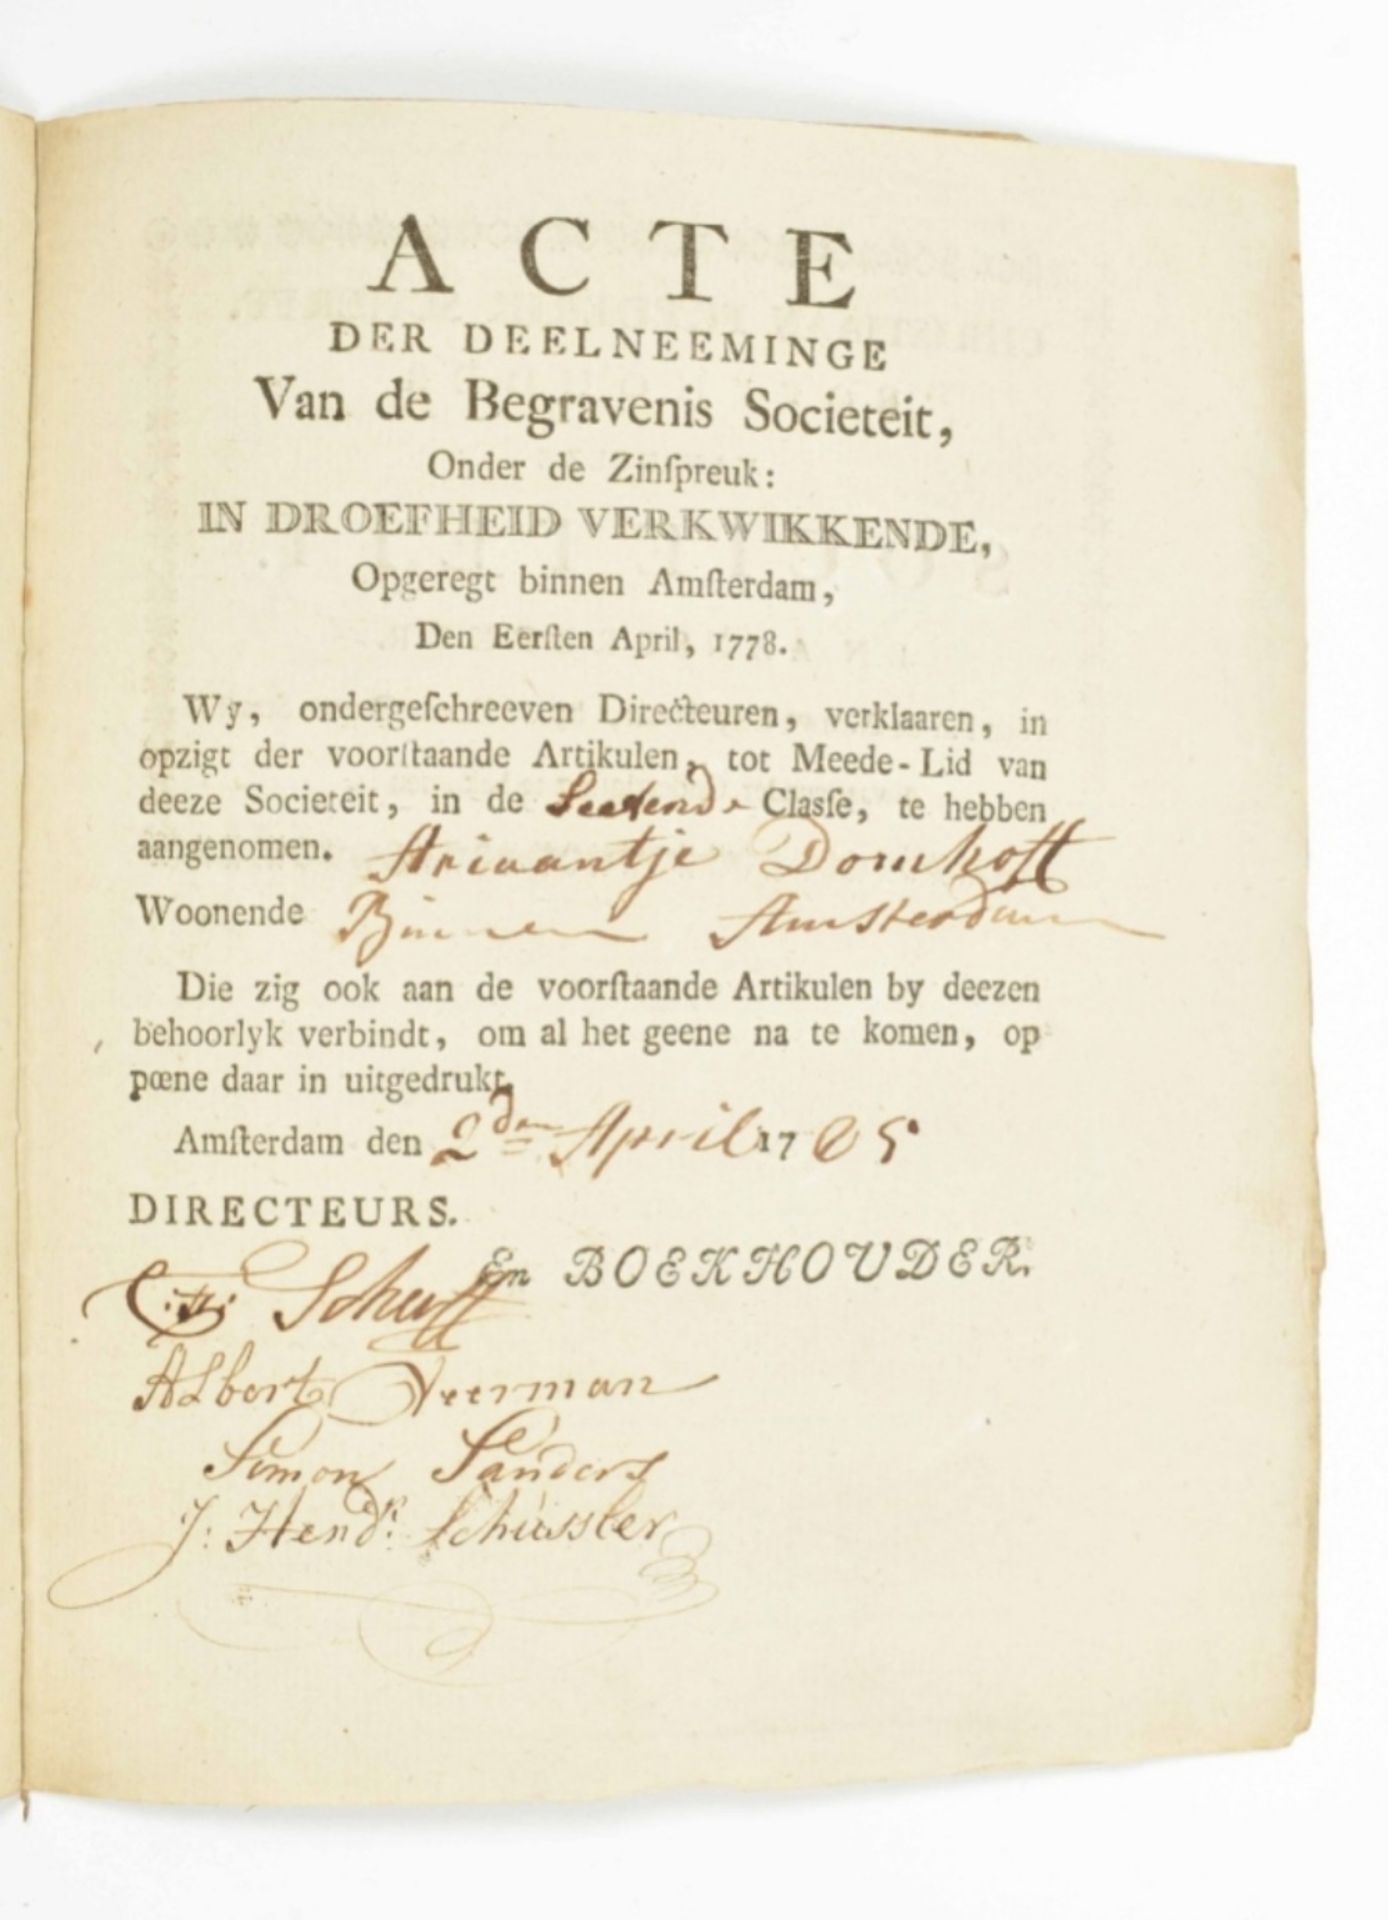 ACTE
DER DEELNEEMINGE
Van de Begravenis Societeit,
Onder de Zinſpreuk:
IN DROEFHEID VERKWIKKENDE,
Opgeregt binnen Amſterdam,
Den Eerſten April, 1778.
Wy, ondergeſchreeven Directeuren, verklaaren, in
opzigt der voorſtaande Artikulen, tot Meede-Lid van
deeze Societeit, in de Claſſe, te hebben
aangenomen. Ariaantje Domhoff
Woonende Binnen Amsterdam
Die zig ook aan de voorſtaande Artikulen by deezen
behoorlyk verbindt, om al het geene na te komen, op
pœne daar in uitgedrukt.
Amſterdam den 2den April 1785
DIRECTEURS.
En BOEKHOUDER.
Scheff
Albert Veerman
Simon Sanders
J: Hendk: Schüssler